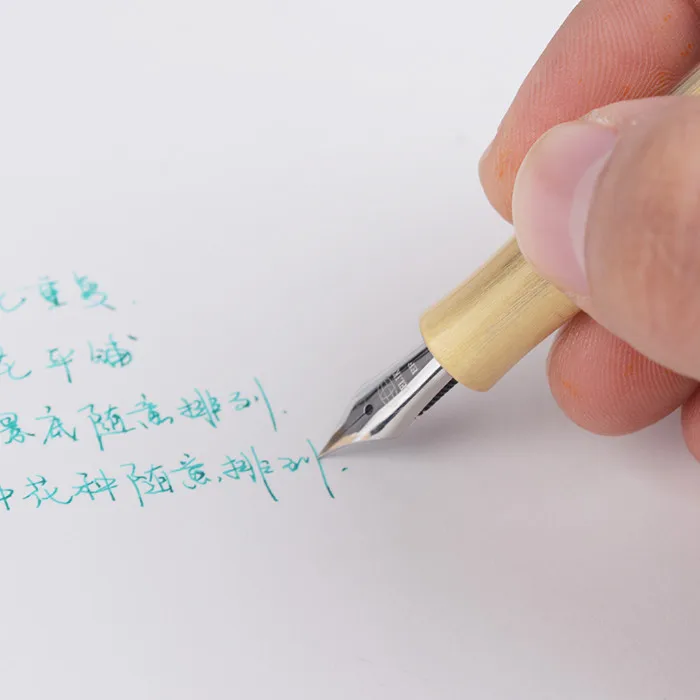 重复.
花平铺
景底随意排列.
种花种随意排列.